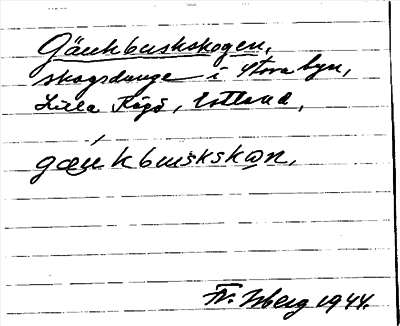 Gäukbuskskogen,
skogsdunge i Stora byn,
Lilla Rågö, Estland,
gäu̯kbuskskωn,
Fr. Isberg 1944.